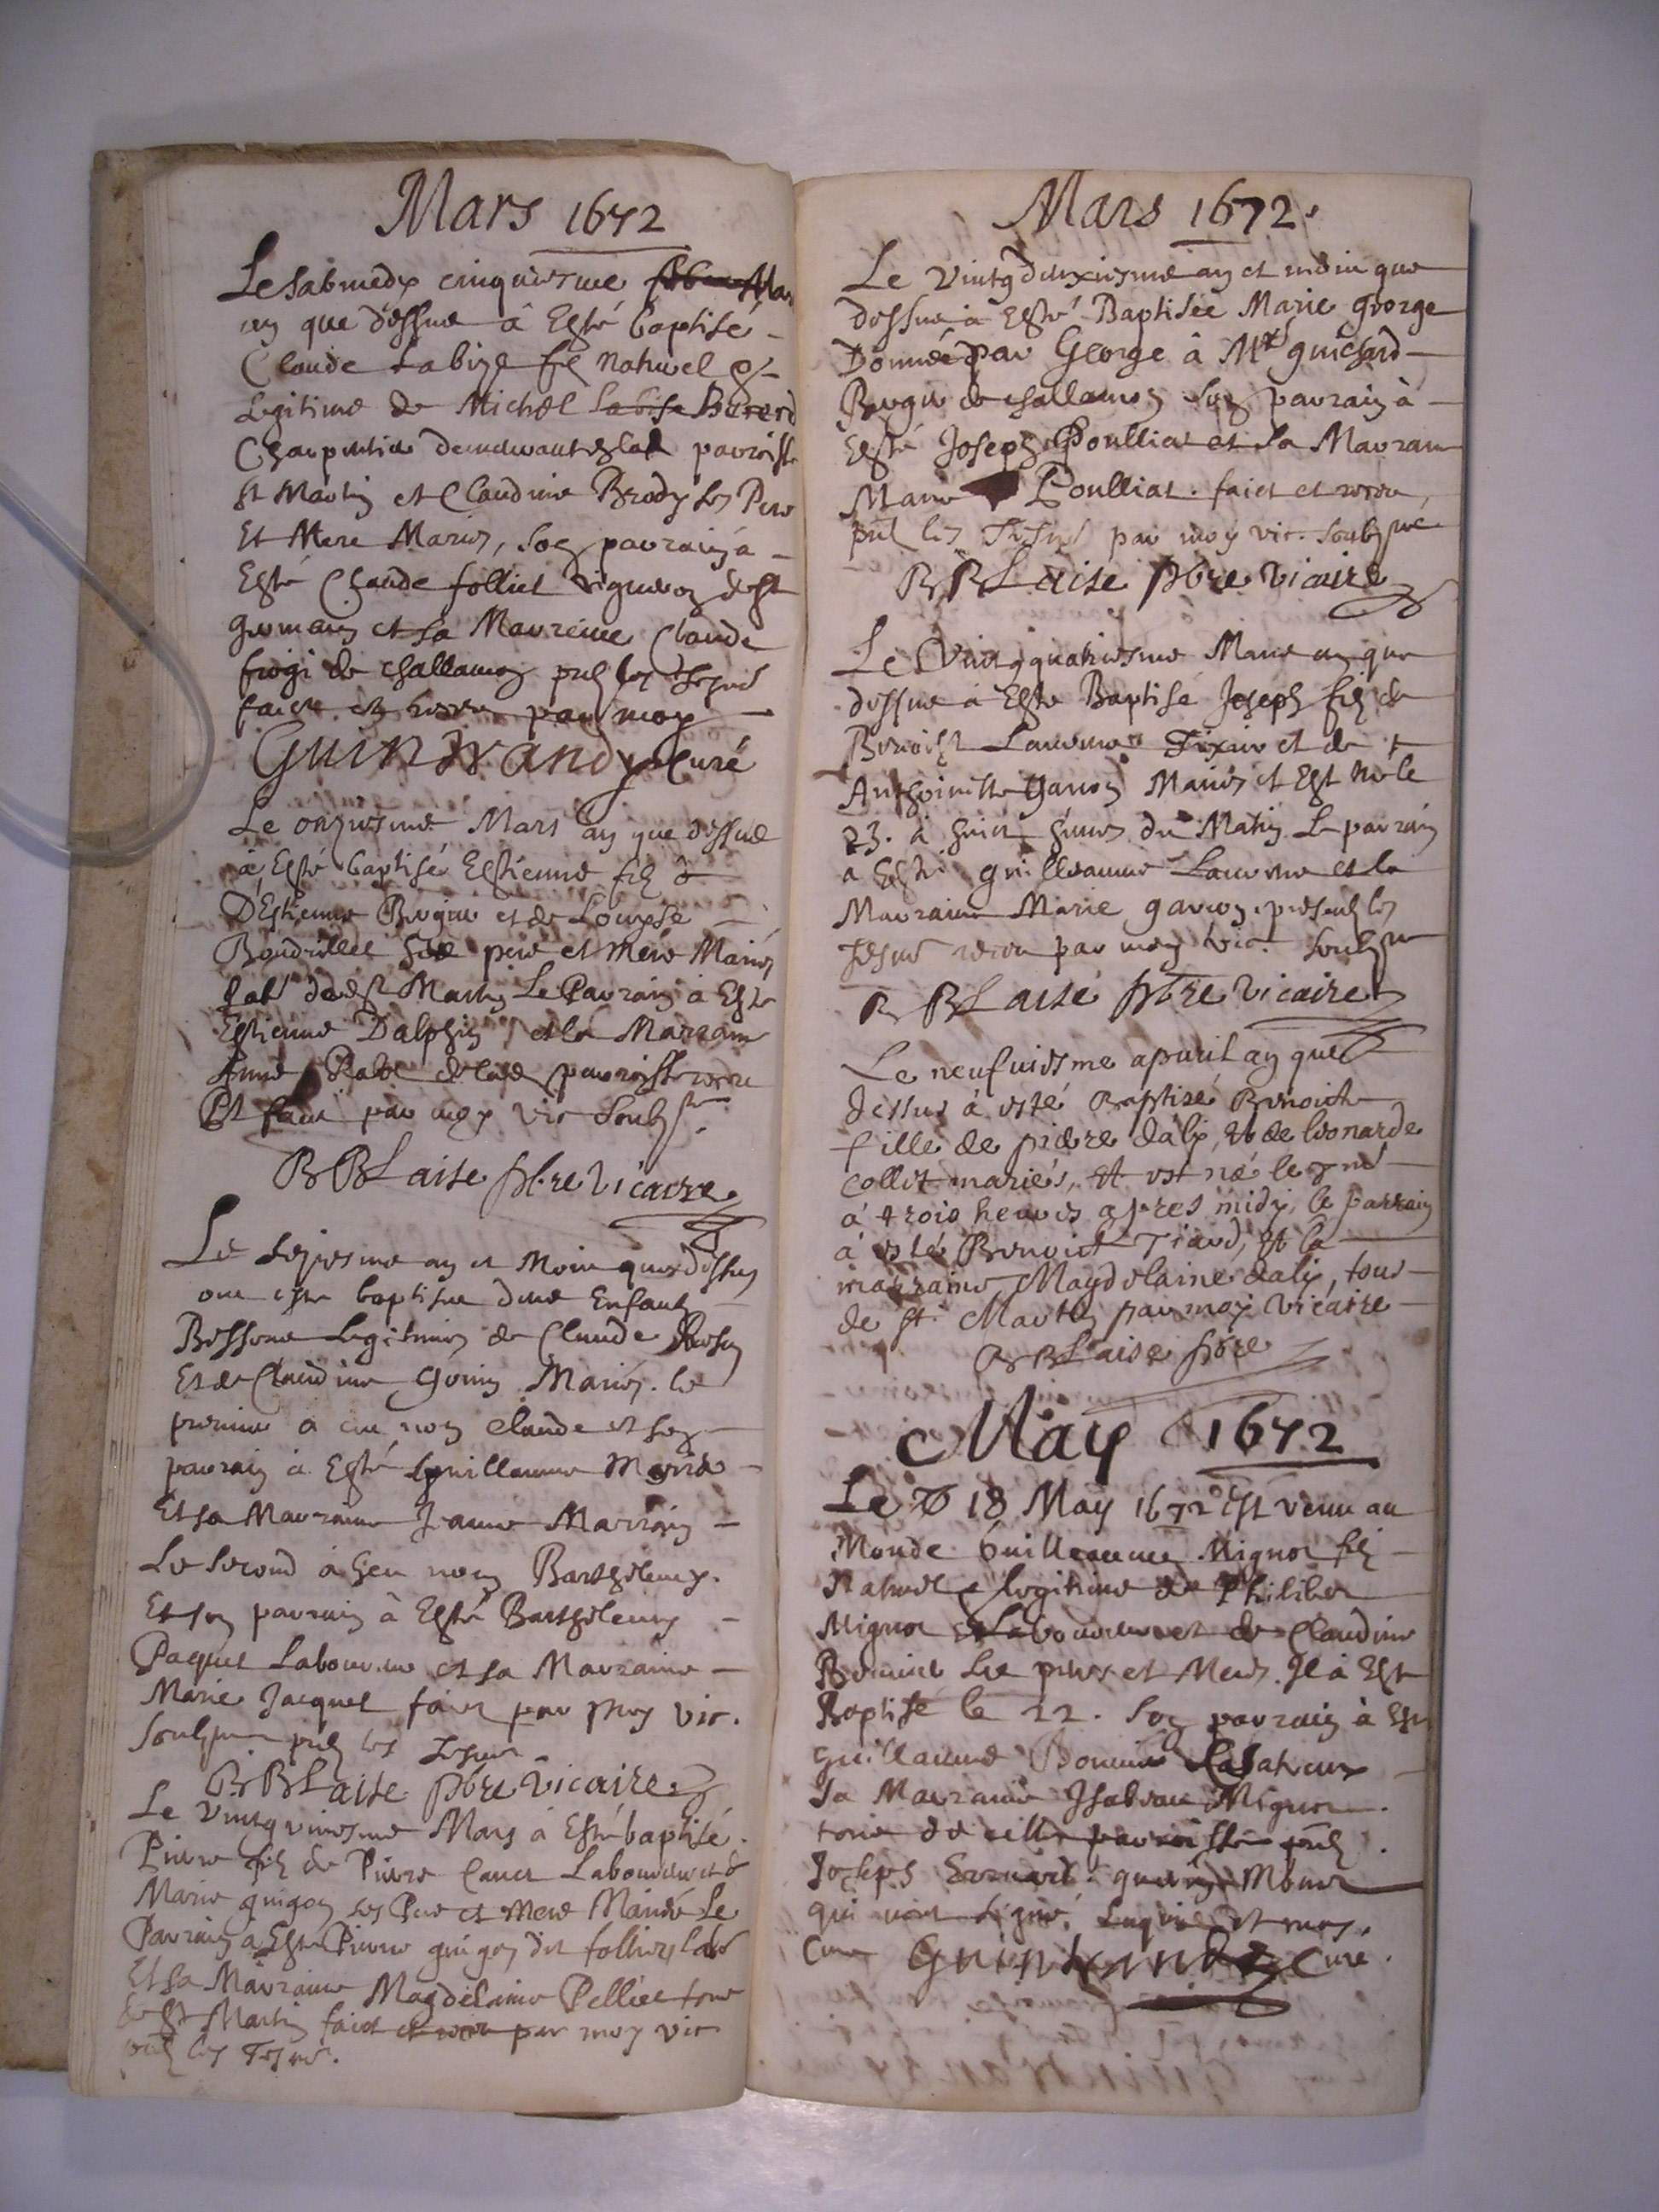 Mars 1672
Le Sabmedy cinquiesme
an que dessus à Esté baptisé
Claude Labize fils naturel &
Legitime de Michel Labise Bererd
Charpentier demeurant de lad parroisse
St Martin et Claudine Brody ses Pere
Et Mere Mariez, son parrain à
Esté Claude folliet vigneron de St
Germain et sa Marreine Claude
frogi de challamon pnt les Tesmoins
faict et receu par moy
Guinwandy Curé
Le onziesme Mars an que dessus
à Esté baptisé Estienne fils
D'Estienne Brugiere et de Louyse
Boudrillet pere et Mere Mariés
hab de St Martin Le Parrain à Esté
Estienne Dalphin et la Marraine
Anne de lad parroisse receu
Et faict par moy vic soubsné
B Blaise pbre vicaire
Le seziesme an et Mois que dessus
ont esté baptisés deux Enfants
Bessons Legitimes de Claude
Et de Claudine Gonin Mariés. le
premier à eu nom Claude et son
parrain à Esté Guillaume
Et sa Marraine Jeanne
Le Second à heu nom Barthelemy.
Et son parrain à Esté Barthelemy
Paquet Laboureur et sa Marraine
Marie Jacquet faict par moy vic.
Soubsné pnt les Tesmoins
B. Blaise pbre vicaire
Le Vintguniesme Mars à Esté baptisé
Pierre fils de Pierre Canet Laboureur et de
Marie guigon ses Pere et Mere Mariés Le
Parrain à Esté Pierre guigon dit follion
Et sa Marraine Magdelaine Pelliet tous
de St Martin faict et receu par moy vic
pnt les Tesmoins.
Mars 1672.
Le Vintgdeuxiesme an et mois que
dessus à Esté Baptisée Marie George
Donnée par George à Mre guichard
Brugiere de challamon Son parrain à
Esté Joseph Poulliat et Sa Marraine
Marie Poulliat. faict et receu,
pnt les Tesmoins par moy vic. soubsné
B Blaise pbre vicaire
Le Vintgquatriesme Mars an que
dessus à Esté Baptisé Joseph fils de
Benoist Laurens Tixier et de
Anthoinette Garron Mariés et Est Né le
23. à huict heures du Matin Le parrain
à Esté guilleaume et la
Marraine Marie garron. presents les
Tesmoins receu par moy vic. soubsné
B Blaise pbre vicaire
Le neufuiesme apuril an que
dessus à esté Baptisé Benoicte
fille de pierre dalix, et de leonarde
collet mariés, et est né le
à trois heures apres midy, le parrain
à esté Benoict Tiaud, et la
marraine Magdelaine dalix, tous
de St. Martin par moy vicaire
B Blaise pbre
May 1672
Le 18 May 1672 Est venu au
Monde Guilleaume Mignot fils
Naturel & legitime de Philiber
Mignot Laboureur et de Claudine
Bonnier ses peres et Meres. Il à Esté
Baptisé le 22. Son parrain à Esté
guillaume Bonnier
Sa Marraine Isabeau Mignot.
tous de cette parroisse pnt
Joseph Monet
qui ont signé, Enquis et moy.
Curé Guinwandy Curé.